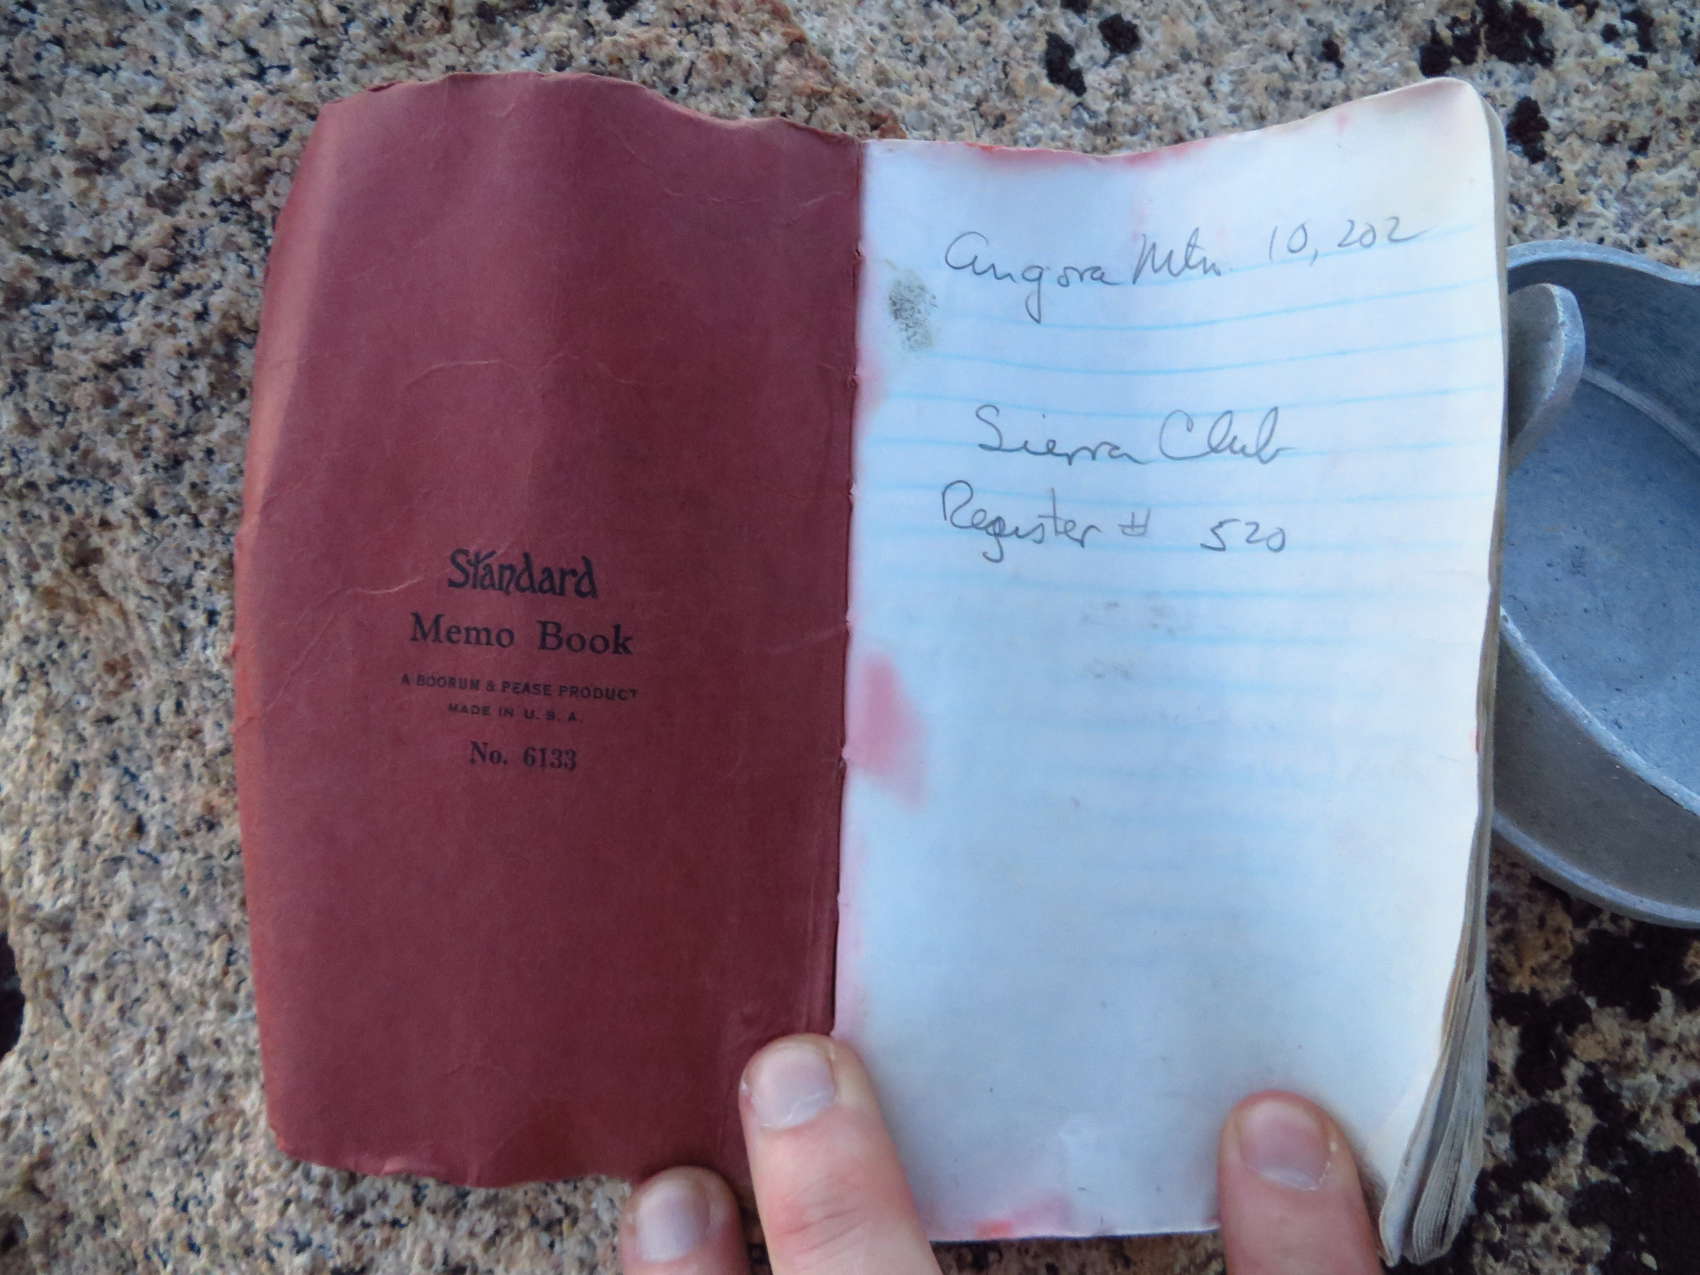 Standard
Memo Book
A BOORUM & PEASE PRODUCT
MADE IN U. S. A.
No. 6133
Angora Mtn. 10,202
Sierra Club
Register # 520